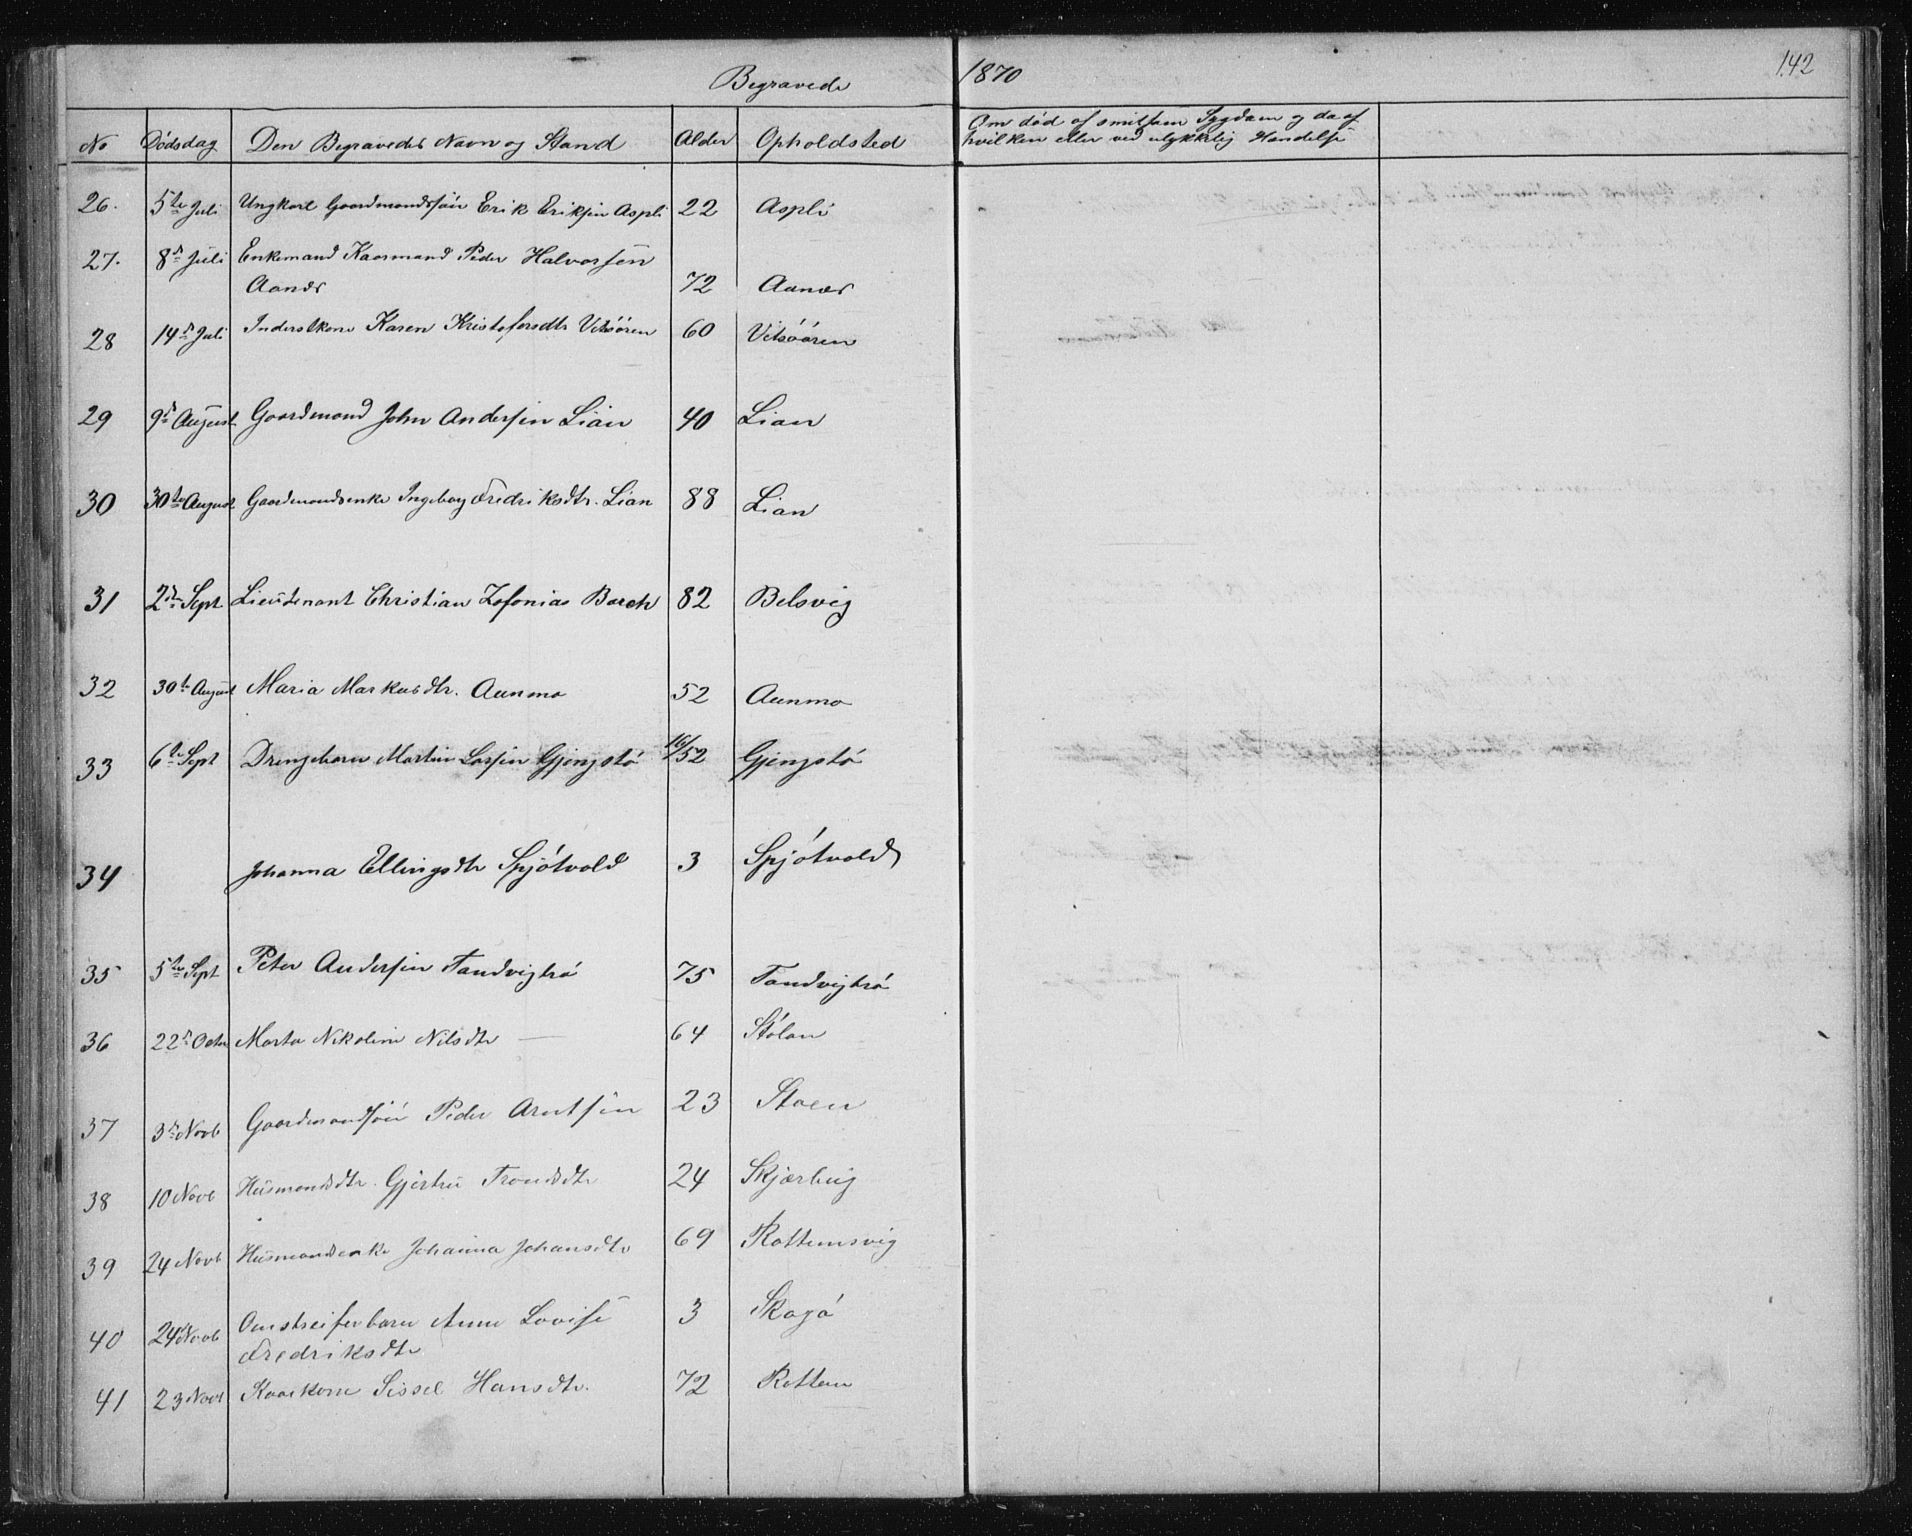 Begravede 1870 142
No Dödsdag Den Begravedes Navn og Stand Alder Opholdsted Om död af smitsom Sygdom og da af
hvilken eller ved ulykkelig Hændelse
26. 5te Juli Ungkarl Gaardmandssön Erik Eriksen Aspli 22 Aspli
27. 8de Juli Enkemand Kaarmand Peder Halvorsen
Aanes 72 Aanes
28 14de Juli Inderstkone Karen Kristofersdtr Vitsöören 60 Vitsöören
29 9de August Gaardmand John Andersen Lian 40 Lian
30 30te August Gaardmandsenke Ingeborg Fredriksdtr. Lian 88 Lian
31 2den Sept Lieutenant Christian Zefonias Barch 82 Belsvig
32 30te August Maria Markusdtr. Aunmo 52 Aunmo
33 6te Sept Drengebarn Martin Larsen Gjengstö 16/52 Gjengstö
34 Johanna Ellingsdtr Spjötvold 3 Spjötvold
35 5te Sept Peter Andersen Tandvigtrö 75 Tandvigtrö
36 22de Octbr Marta Nikoline Nilsdtr — 64 Stölan
37 3de Novb Gaardmandssön Peder Arntsen 23 Stoen
38 10 Novb Husmandsdtr. Gjertru Trondsdtr 24 Skjærbug
39 24 Novb Husmandsenke Johanna Johansdtr 69 Rottemsvig
40 24 Novb Omstreiferbarn Anne Lovise 3 Skogö
Fredriksdtr
41 23 Novb Kaarkone Sissel Hansdtr. 72 Rottem